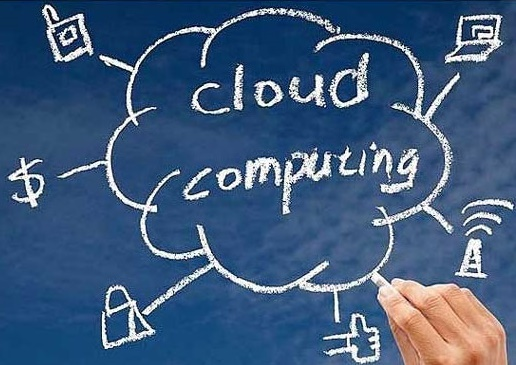 cloud
computing
$